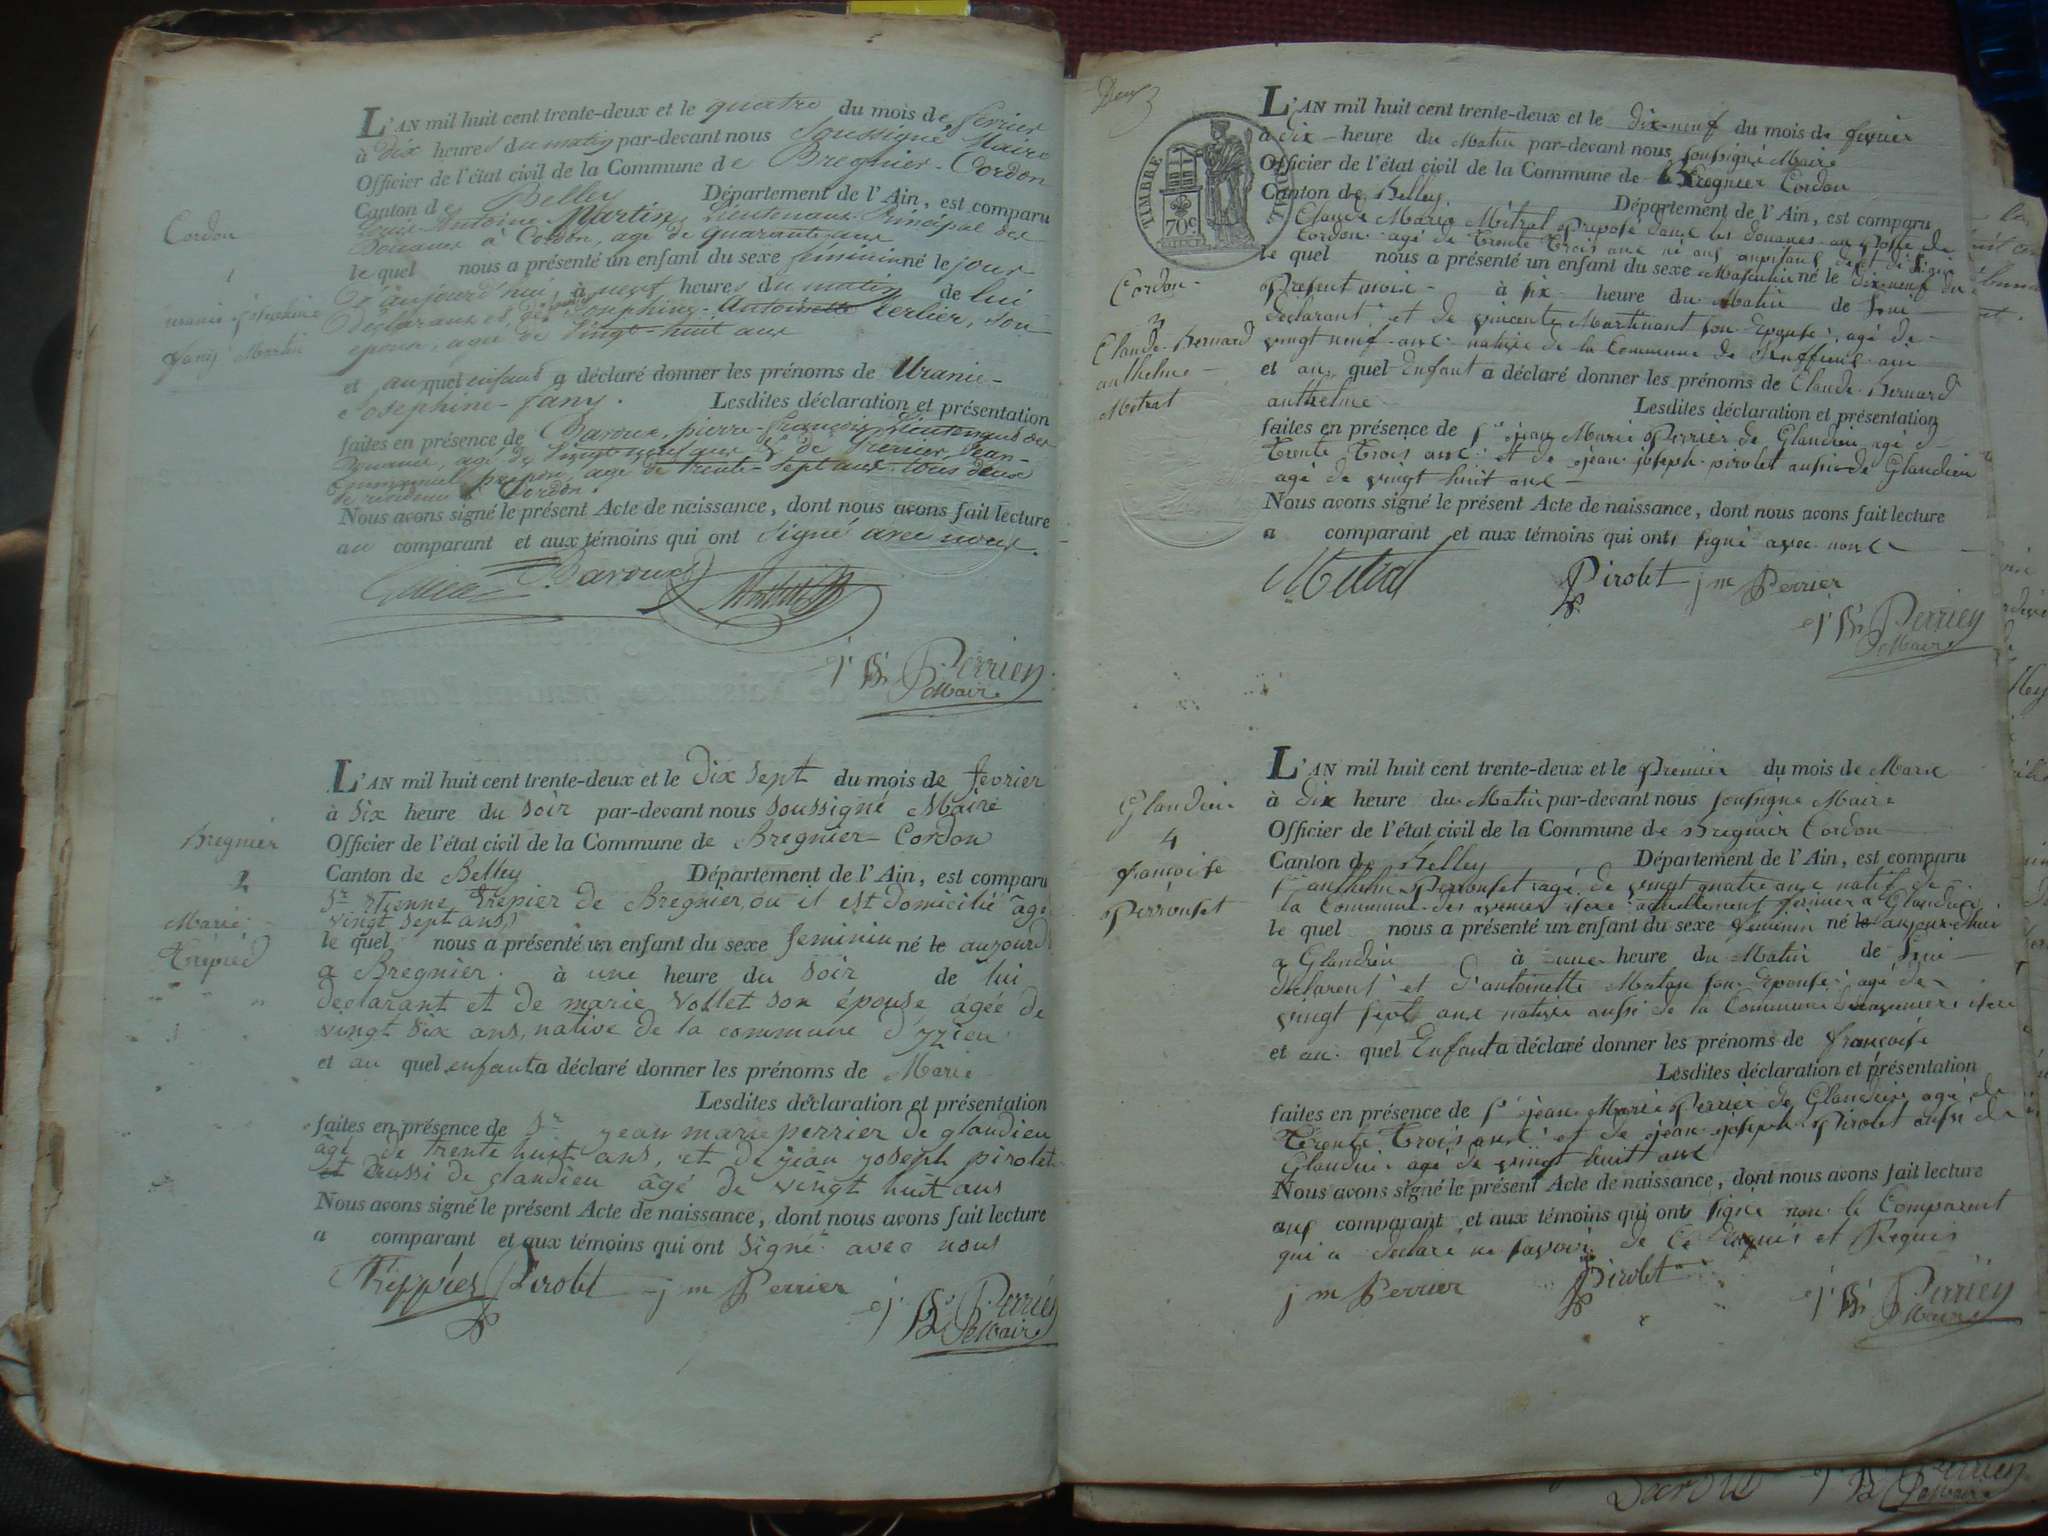 L'AN mil huit cent trente-deux et le quatre du mois de fevrier
à dix heures du matin par-devant nous Soussigné, Maire
Officier de l'état civil de la Commune de Bregnier-Cordon
Canton de Belley Département de l'Ain, est comparu
Louis Antoine Martin, Lieutenant Principal des
Douanes à Cordon, agé de quarante ans
le quel nous a présenté un enfant du sexe féminin né le jour
d'aujourd'hui à neuf heures du matin de lui
déclarant et de Josephine Antoinette Terlier, son
épouse, agée de vingt-huit ans
et au quel enfant a déclaré donner les prénoms de Uranie-
Josephine-fany. Lesdites déclaration et présentation
faites en présence de Baroux, pierre-françois Lieutenant des
Douanes, agé de ans & de Grenier, Jean-
préposé, agé de trente-sept ans tous deux
de résidence à Cordon.
Nous avons signé le présent Acte de naissance, dont nous avons fait lecture
au comparant et aux témoins qui ont signé avec nous.
Baroux
j. B. Perrier
Maire
Cordon
1
uranie josephine
fany Martin
L'AN mil huit cent trente-deux et le dix sept du mois de fevrier
à six heure du soir par-devant nous soussigné Maire
Officier de l'état civil de la Commune de Bregnier-Cordon
Canton de Belley Département de l'Ain, est comparu
Sr. etienne trepier de Bregnier, ou il est domicilié agé
vingt sept ans,
le quel nous a présenté un enfant du sexe feminin né le aujourd
a Bregnier. à une heure du soir de lui
declarant et de marie vollet son épouse âgée de
vingt six ans, native de la commune d'yzieu
et au quel enfant a déclaré donner les prénoms de Marie
Lesdites déclaration et présentation
faites en présence de Sr. jean marie perrier de glandieu
âgé de trente huit ans, et de jean joseph pirolet
et aussi de glandieu âgé de vingt huit ans
Nous avons signé le présent Acte de naissance, dont nous avons fait lecture
a comparant et aux témoins qui ont signé avec nous
Treppier Pirolet j m Perrier
j. B. Perrier
Maire
Bregnier
2
Marie
Deux
TIMBRE
70 c
L'AN mil huit cent trente-deux et le dix-neuf du mois de fevrier
à dix heure du Matin par-devant nous soussigné Maire
Officier de l'état civil de la Commune de Bregnier Cordon
Canton de Belley Département de l'Ain, est comparu
Claude Marie Métral Préposé dans les douanes au poste de
Cordon agé de trente trois ans né aux
le quel nous a présenté un enfant du sexe Masculin né le dix-neuf du
Present mois à six heure du Matin de Lui
declarant et de vincente Martinant son Epouse, agé de
vingt neuf ans native de la Commune de
et au quel Enfant a déclaré donner les prénoms de Claude Bernard
anthelme Lesdites déclaration et présentation
faites en présence de Sr jean Marie Perrier de Glandieu agé de
trente trois ans et de jean joseph pirolet aussi de Glandieu
agé de vingt huit ans
Nous avons signé le présent Acte de naissance, dont nous avons fait lecture
a comparant et aux témoins qui ont signé avec nous
Métral Pirolet j m Perrier
j. B. Perrier
Maire
Cordon
3
Claude Bernard
anthelme
Métral
L'AN mil huit cent trente-deux et le Premier du mois de Mars
à dix heure du Matin par-devant nous soussigné Maire
Officier de l'état civil de la Commune de Bregnier Cordon
Canton de Belley Département de l'Ain, est comparu
Sr anthelme Perrouset agé de vingt quatre ans natif de
la Commune des avenier isere actuellement fermier a Glandieu
le quel nous a présenté un enfant du sexe feminin né le aujourdhui
a Glandieu à une heure du Matin de Lui
declarent et d'antoinette Maton son Epouse, agé de
vingt sept ans native aussi de la Commune des avenier isere
et au quel Enfant a déclaré donner les prénoms de françoise
Lesdites déclaration et présentation
faites en présence de Sr jean Marie Perrier de Glandieu agé de
trente trois ans et de jean joseph Pirolet aussi de
Glandieu agé de vingt huit ans
Nous avons signé le présent Acte de naissance, dont nous avons fait lecture
aux comparant et aux témoins qui ont signé non le Comparent
qui a declaré ne savoir de Ce Enquis et Requis
j m Perrier Pirolet
j. B. Perrier
Maire
Glandieu
4
françoise
Perrouset
j. B. Perrier
Maire